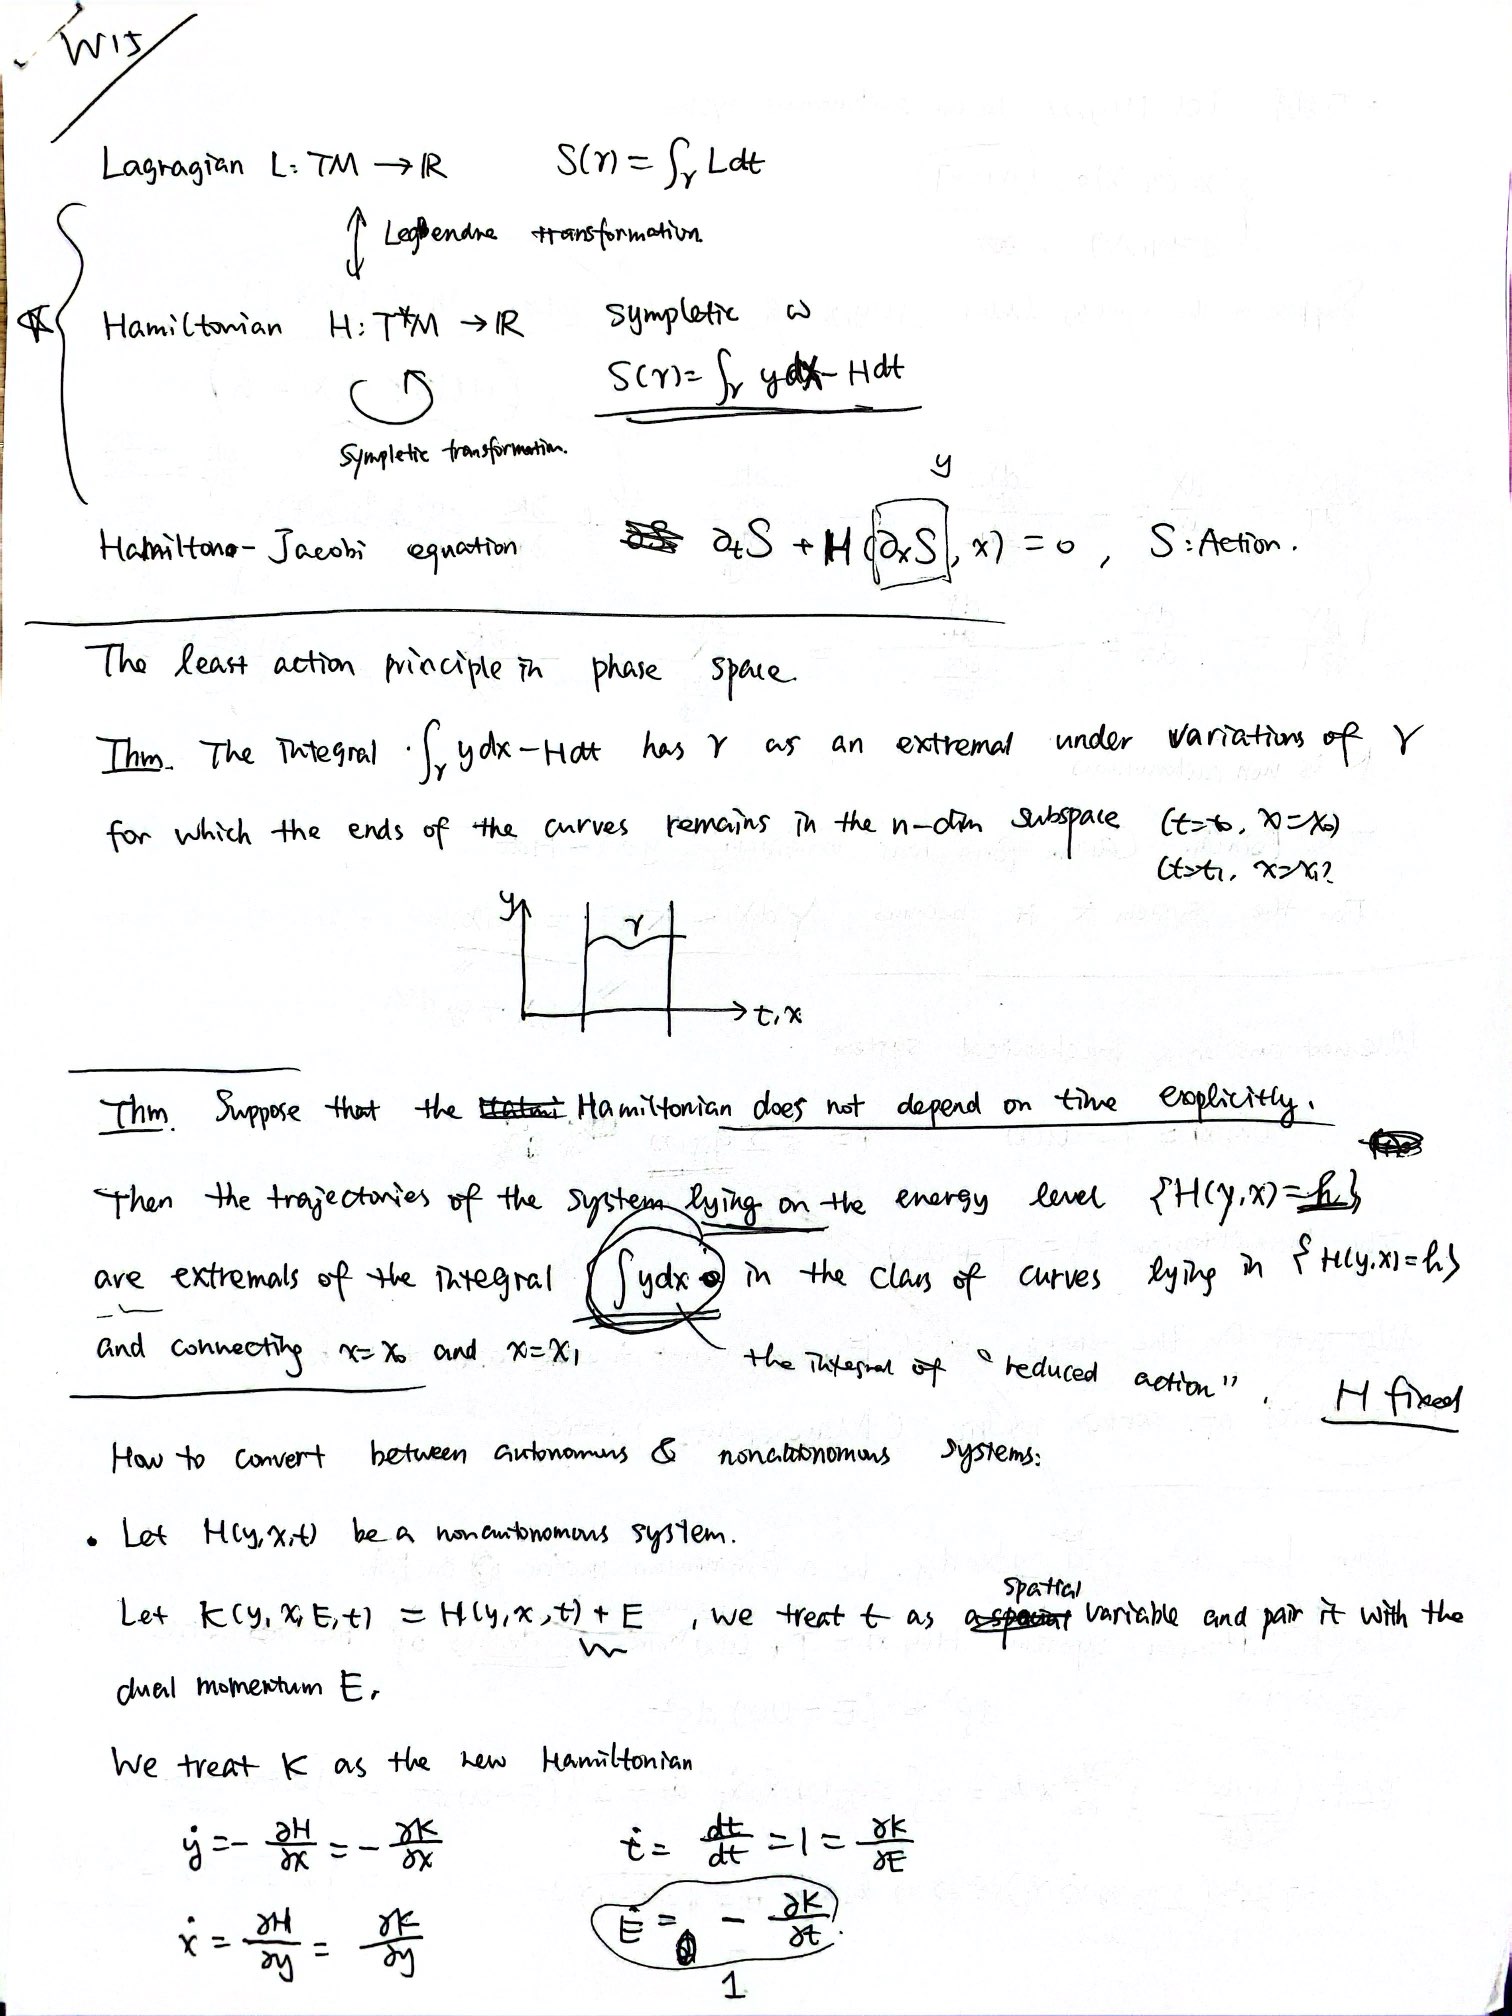 W15
Lagragian L: TM → ℝ S(γ) = ∫_γ Ldt
↕ Legendre transformation
Hamiltonian H: T*M → ℝ sympletic ω
S(γ) = ∫_γ ydx - Hdt
sympletic transformation.
y
Hamiltono-Jacobi equation ∂tS + H(∂xS, x) = 0, S: Action.
The least action principle in phase space.
Thm. The integral ∫_γ ydx - Hdt has γ as an extremal under variations of γ
for which the ends of the curves remains in the n-dim subspace (t=t0, x=x0)
(t=t1, x=x1)
y
γ
t, x
Thm. Suppose that the Hamiltonian does not depend on time explicitly.
Then the trajectories of the system lying on the energy level {H(y,x)=h}
are extremals of the integral ∫ydx in the class of curves lying in {H(y,x)=h}
and connecting x=x0 and x=x1 the integral of "reduced action". H fixed
How to convert between autonomous & nonautonomous systems:
• Let H(y,x,t) be a nonautonomous system.
spatial
Let K(y, x, E, t) = H(y,x,t) + E, we treat t as variable and pair it with the
dual momentum E.
We treat K as the new Hamiltonian
ẏ = - ∂H/∂x = - ∂K/∂x ṫ = dt/dt = 1 = ∂K/∂E
ẋ = ∂H/∂y = ∂K/∂y Ė = - ∂K/∂t.
1